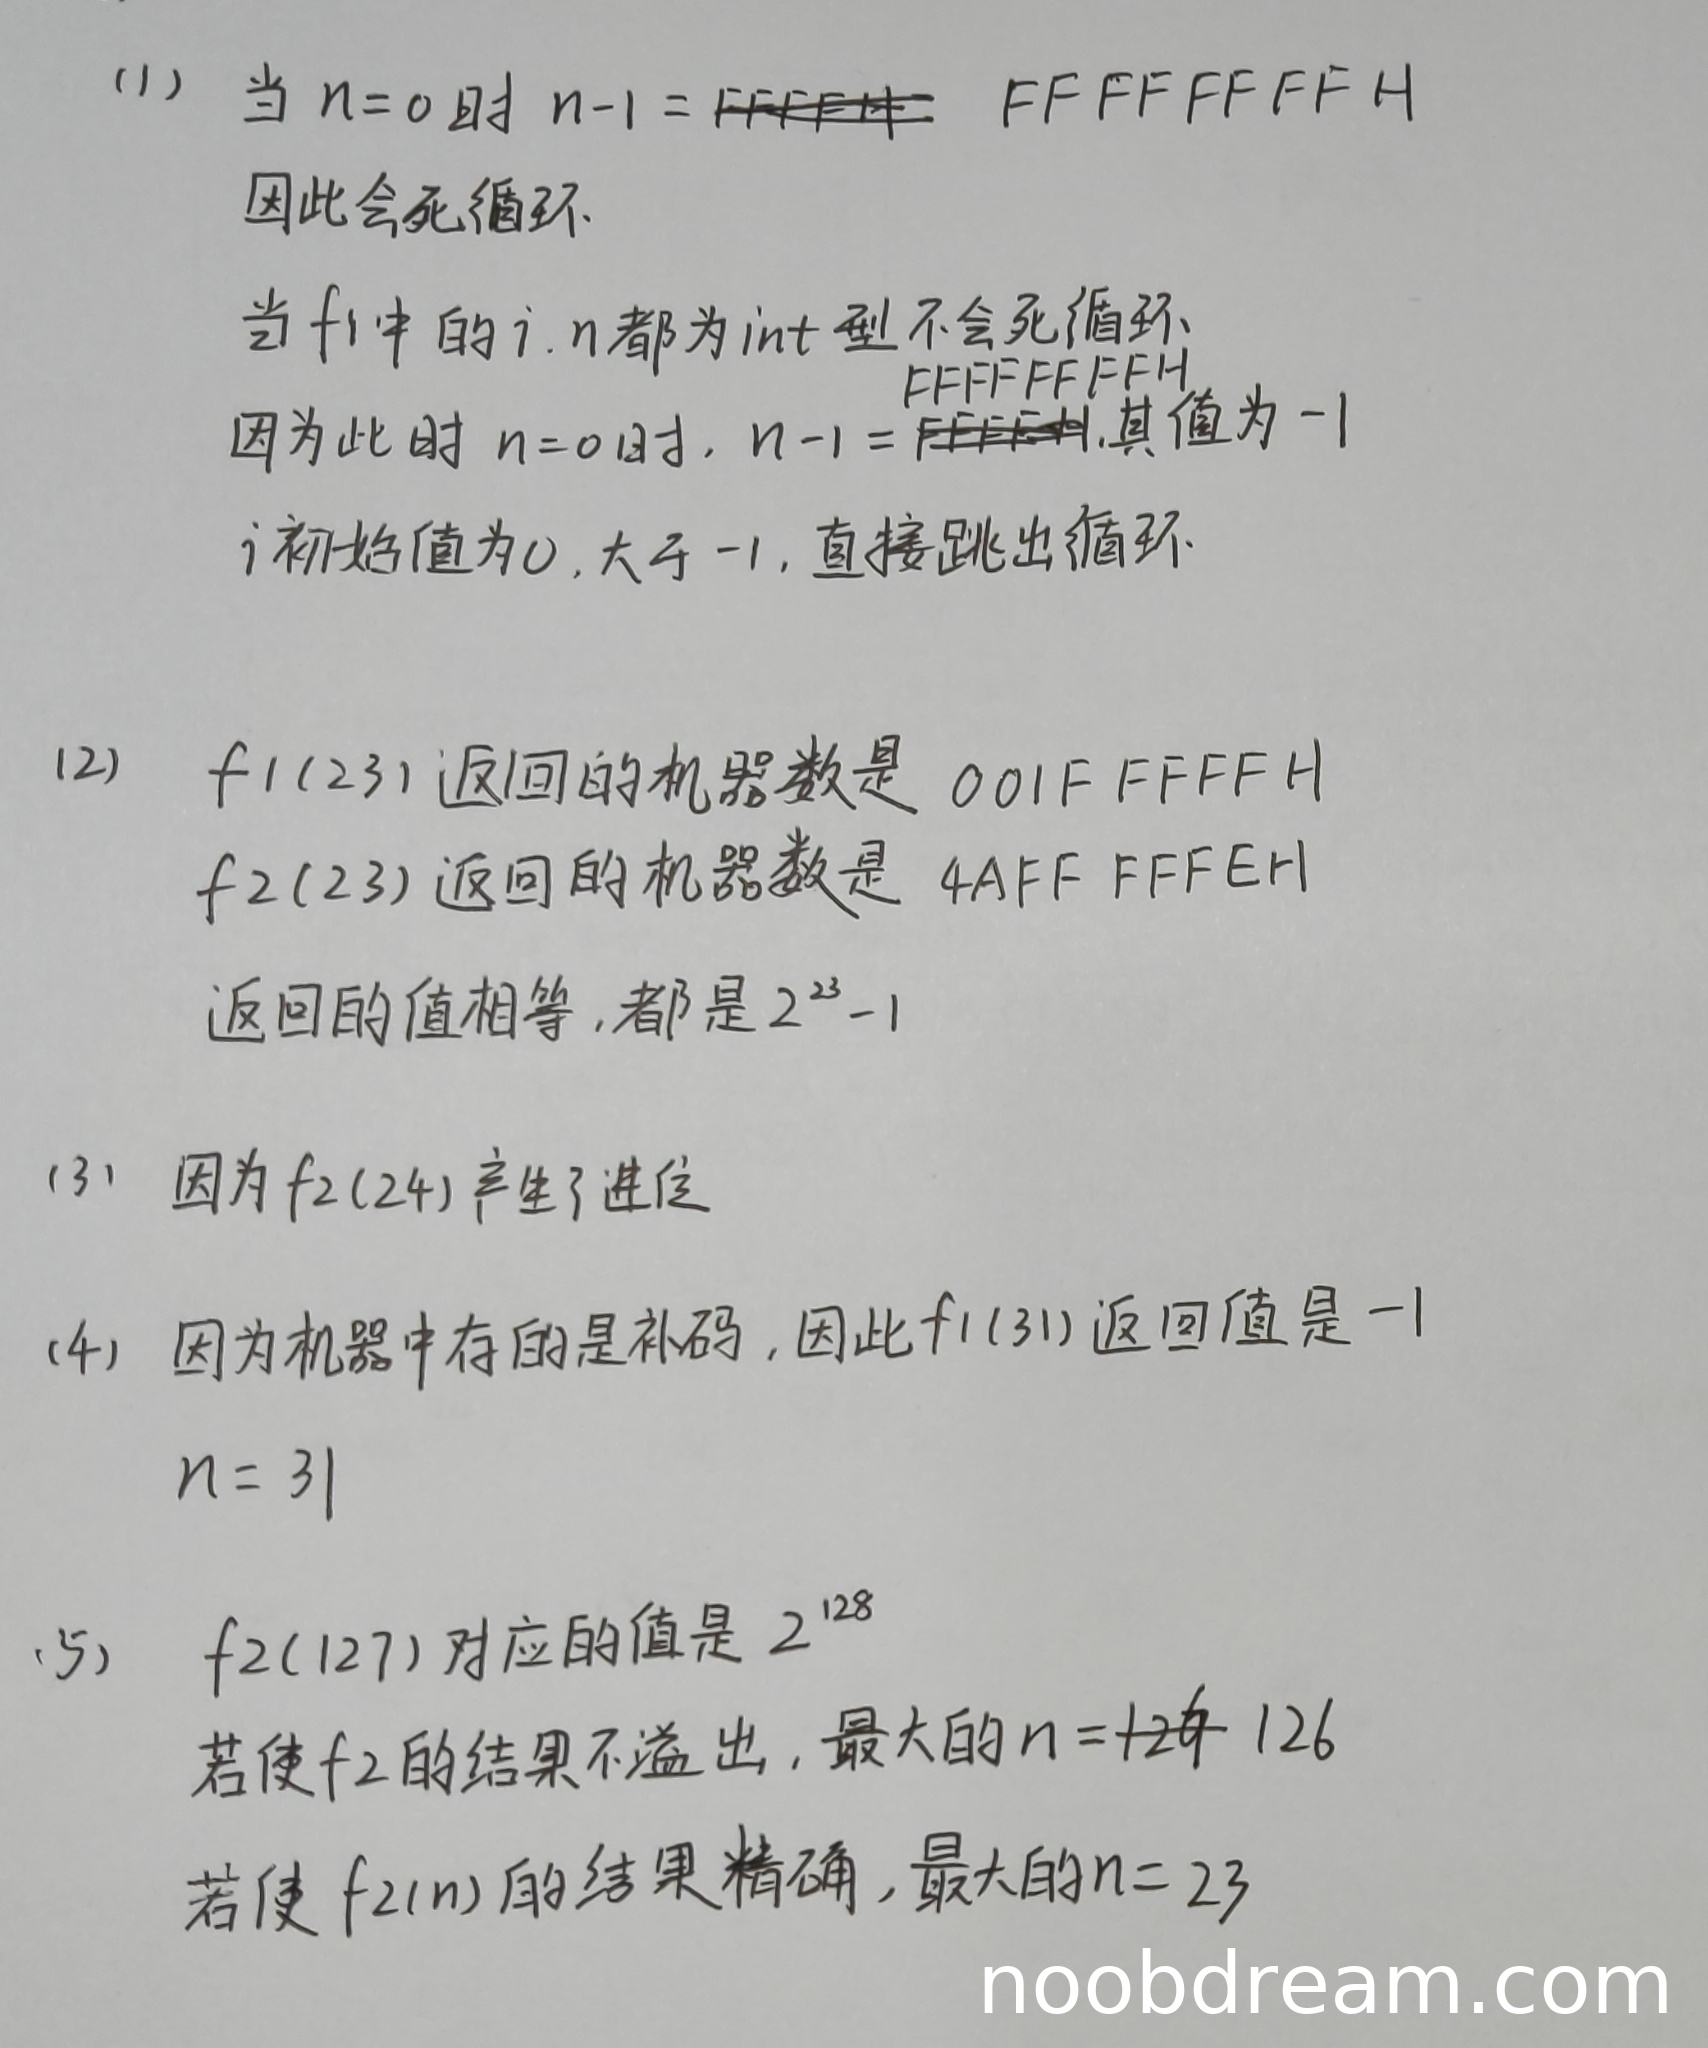 (1) 当 n=0时 n-1 = FFFFH FF FF FF FF H
因此会死循环.
当f1中的i.n都为int型不会死循环、
FFFF FF FFH
因为此时 n=0时, n-1 = FFFFH,其值为-1
i初始值为0,大于-1,直接跳出循环.
(2) f1(23)返回的机器数是 001F FFFF H
f2(23)返回的机器数是 4AFF FFFEH
返回的值相等,都是2²³-1
(3) 因为f2(24)产生了进位
(4) 因为机器中存的是补码,因此f1(31)返回值是-1
n = 31
(5) f2(127)对应的值是 2¹²⁸
若使f2的结果不溢出,最大的n = 126
若使 f2(n)的结果精确,最大的n = 23
noobdream.com